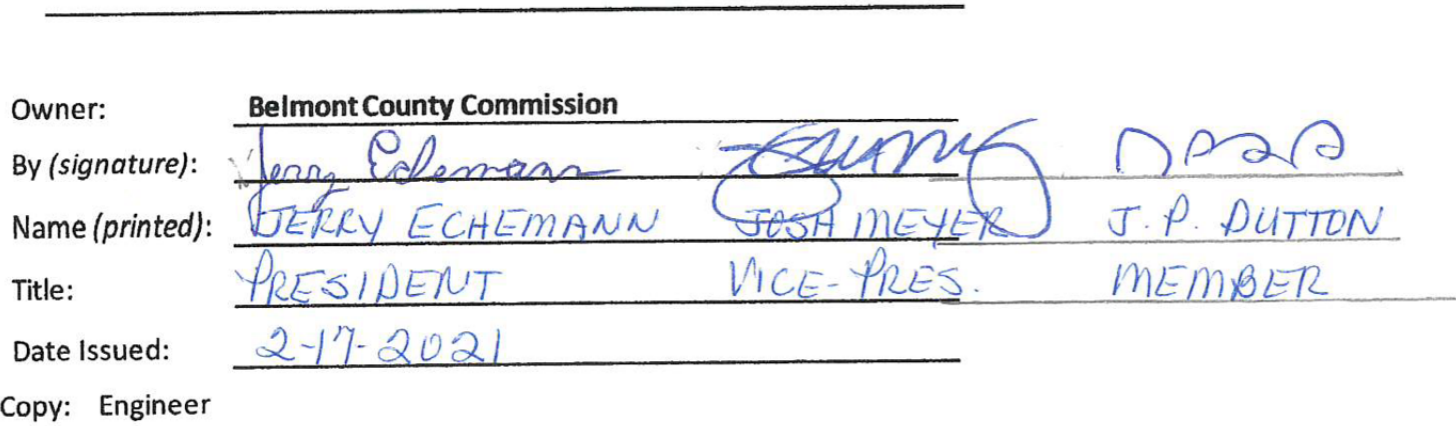 Owner: Belmont County Commission
By (signature): Jerry Echemann
Name (printed): JERRY ECHEMANN JOSH MEYER J.P. DUTTON
Title: PRESIDENT VICE-PRES. MEMBER
Date Issued: 2-17-2021
Copy: Engineer